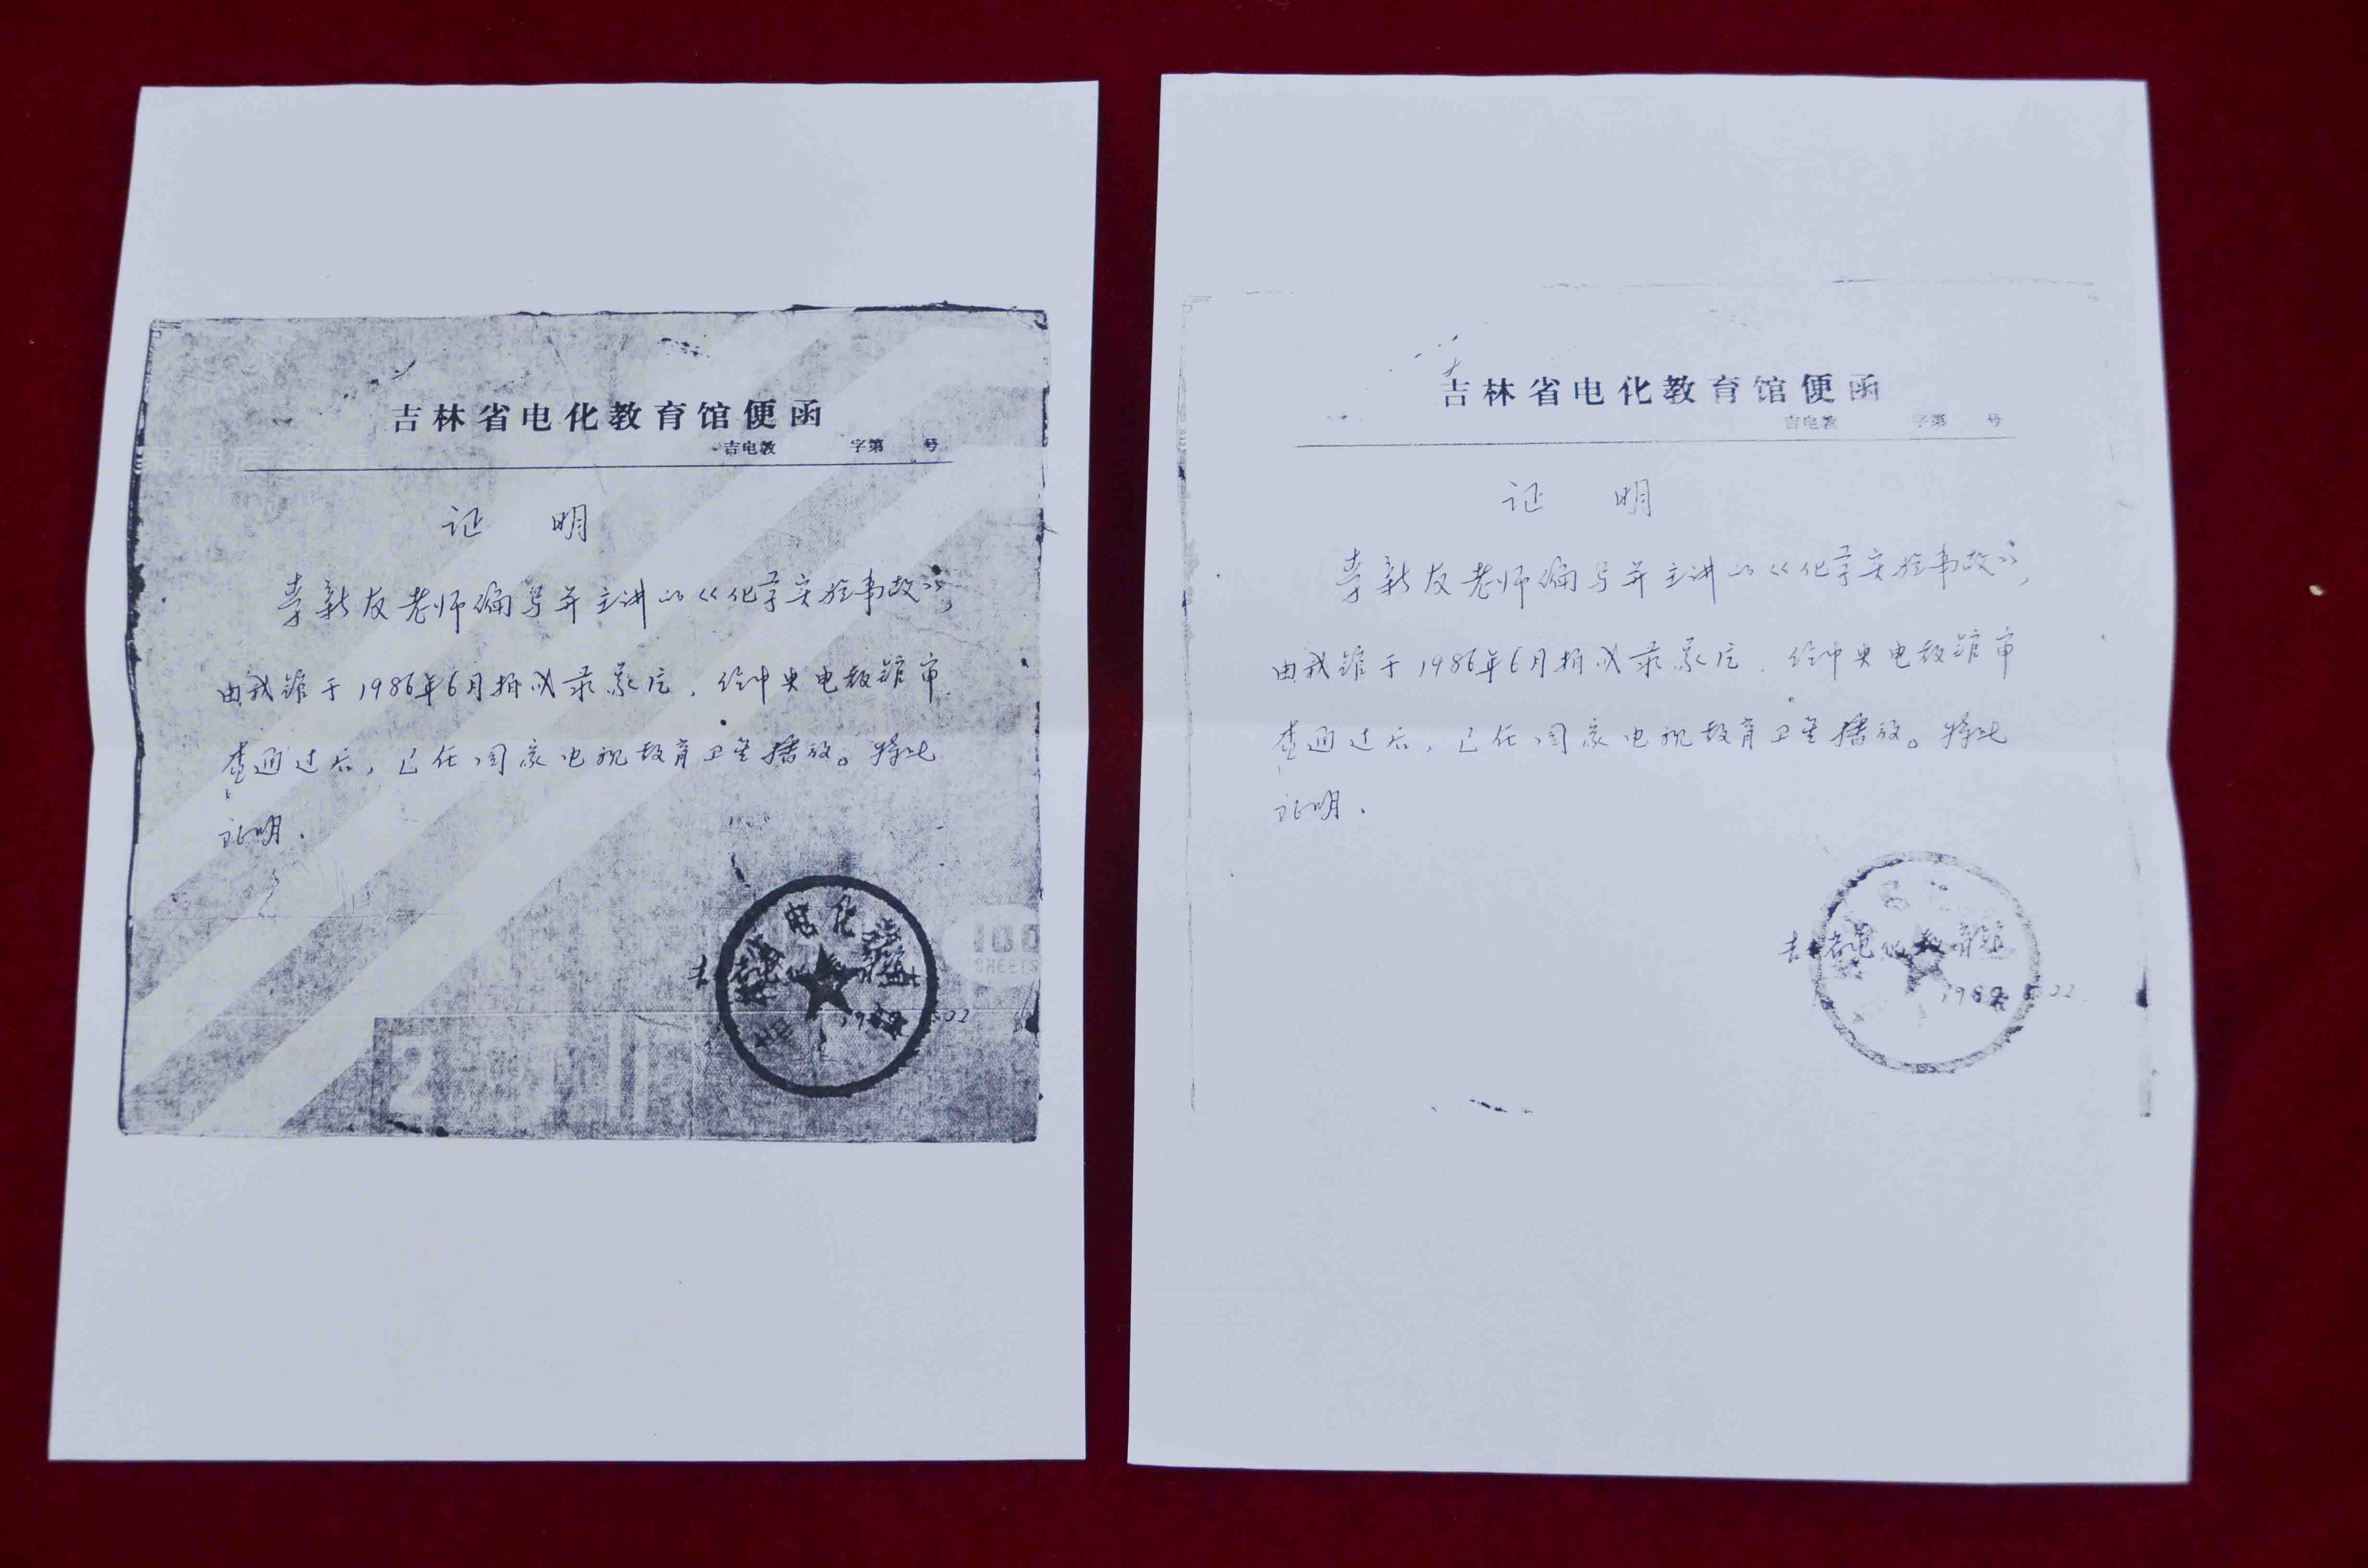 吉林省电化教育馆便函
吉电教 字第 号
证 明
李新友老师编写并主讲的《《化学实验事故》》,
由我馆于1986年6月拍成录象片,经中央电教馆审
查通过后,已在国家电视教育卫星播放。特此
证明.
电化
吉林省电化教育馆
100
SHEETS
吉林省电化教育馆便函
吉电教 字第 号
证 明
李新友老师编写并主讲的《《化学实验事故》》,
由我馆于1986年6月拍成录象片,经中央电教馆审
查通过后,已在国家电视教育卫星播放。特此
证明.
吉林省电化教育馆